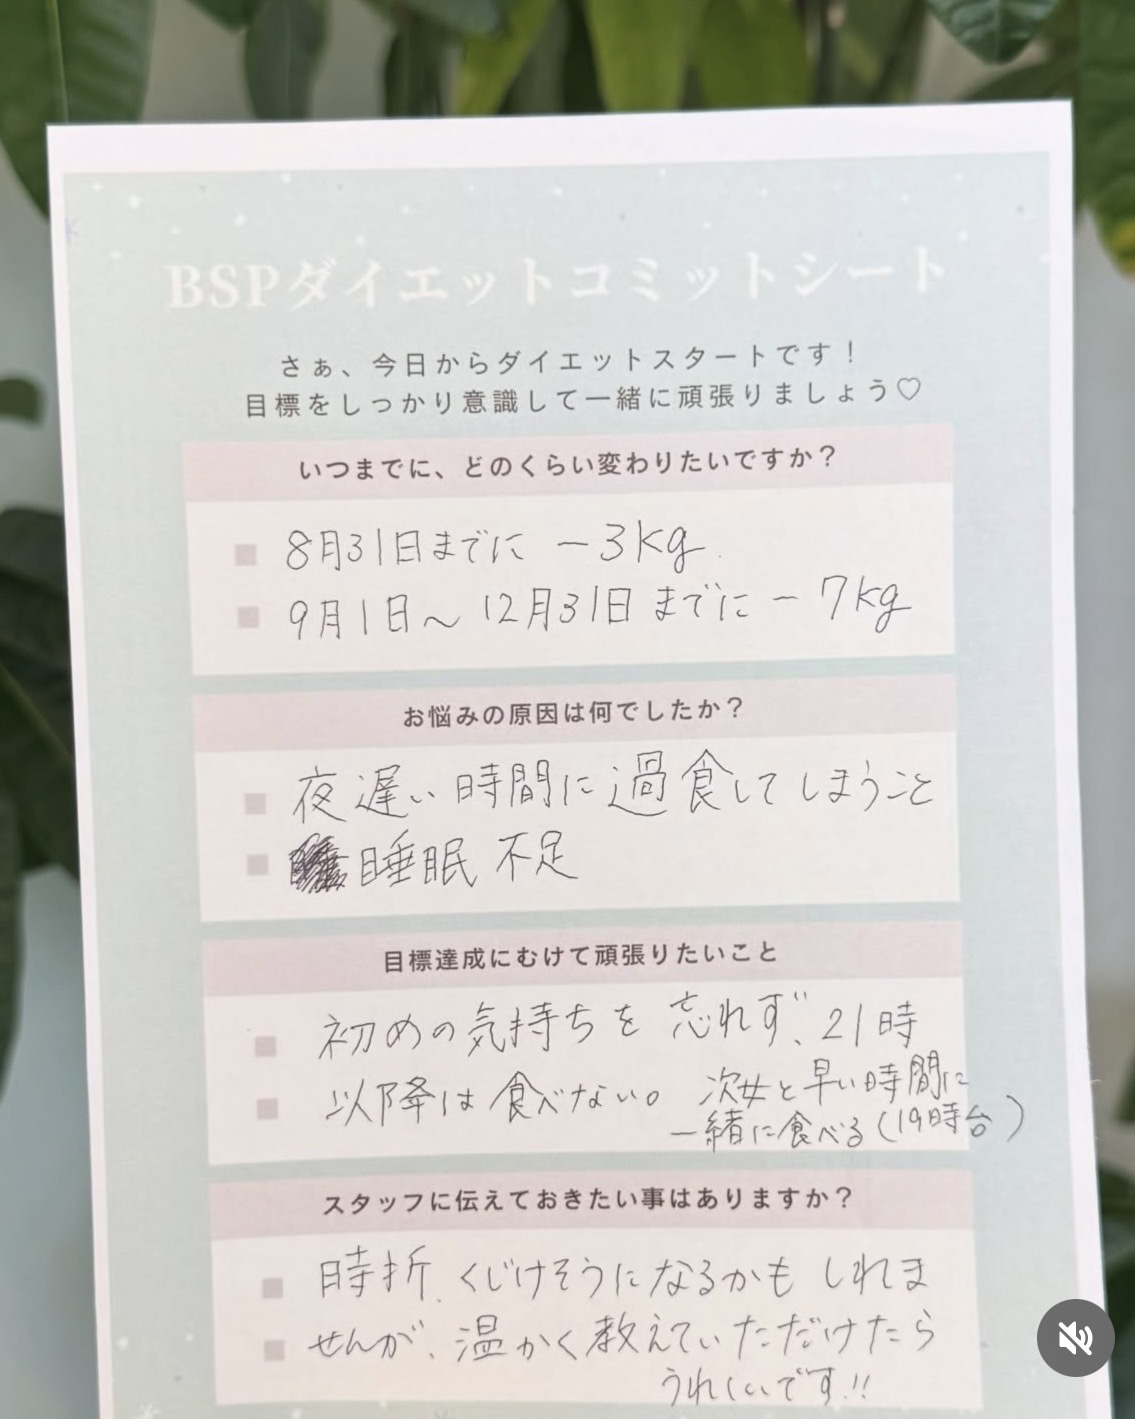 BSPダイエットコミットシート
さぁ、今日からダイエットスタートです！
目標をしっかり意識して一緒に頑張りましょう♡
いつまでに、どのくらい変わりたいですか？
8月31日までに －3kg.
9月1日～12月31日までに－7kg
お悩みの原因は何でしたか？
夜遅い時間に過食してしまうこと
睡眠不足
目標達成にむけて頑張りたいこと
初めの気持ちを忘れず、21時
以降は食べない。次女と早い時間に
一緒に食べる(19時台)
スタッフに伝えておきたい事はありますか？
時折、くじけそうになるかもしれま
せんが、温かく教えていただけたら
うれしいです!!